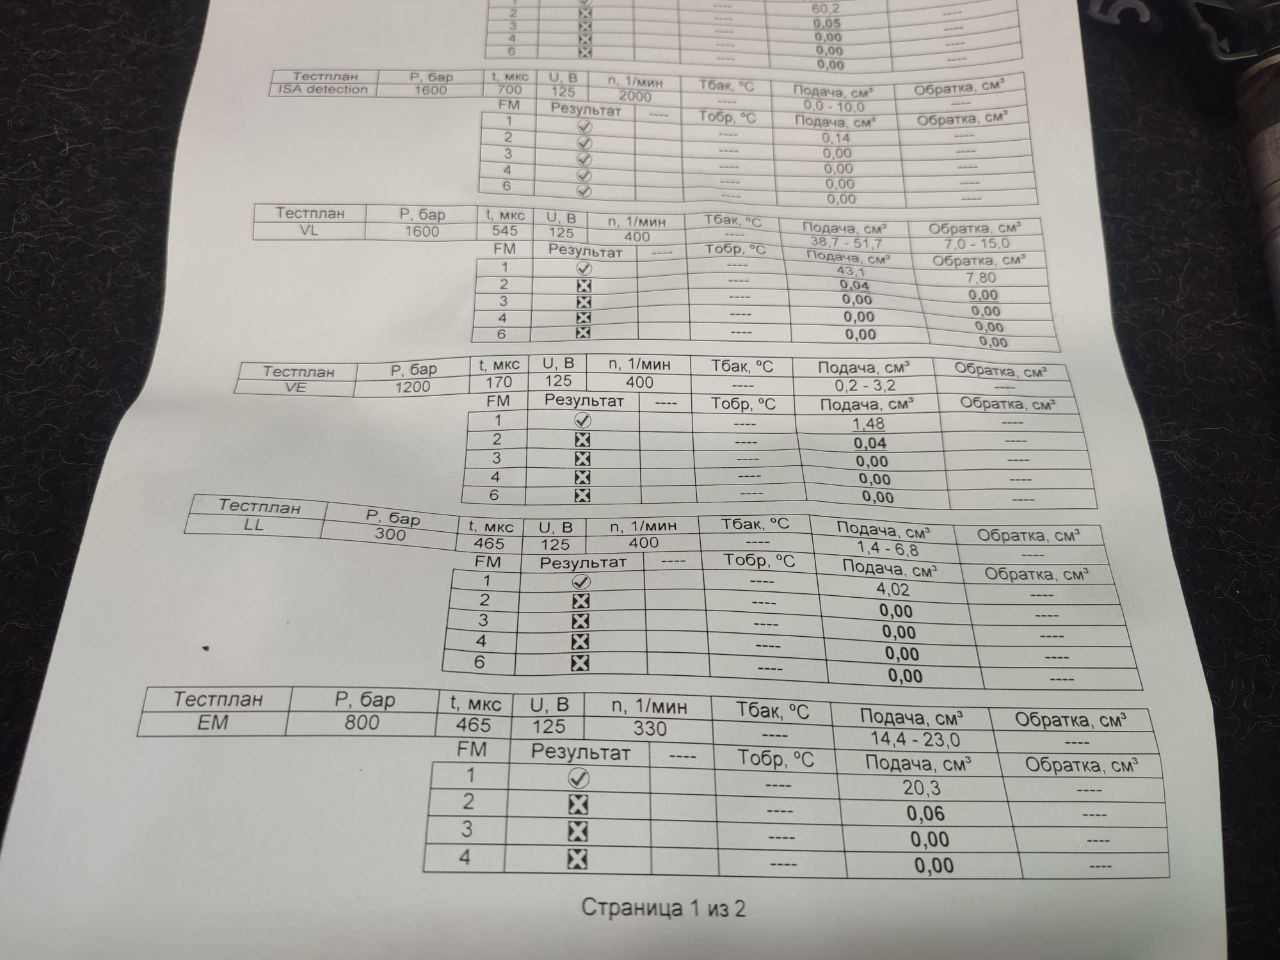 1 60,2 ----
2 ---- 0,05 ----
3 ---- 0,00 ----
4 ---- 0,00 ----
6 ---- 0,00
Тестплан P, бар t, мкс U, В n, 1/мин Тбак, ºС Подача, см³ Обратка, см³
ISA detection 1600 700 125 2000 ---- 0,0 - 10,0 ----
FM Результат ---- Тобр, ºС Подача, см³ Обратка, см³
1 ---- 0,14 ----
2 ---- 0,00 ----
3 ---- 0,00 ----
4 ---- 0,00 ----
6 ---- 0,00 ----
Тестплан P, бар t, мкс U, В n, 1/мин Тбак, ºС Подача, см³ Обратка, см³
VL 1600 545 125 400 ---- 38,7 - 51,7 7,0 - 15,0
FM Результат ---- Тобр, ºС Подача, см³ Обратка, см³
1 ---- 43,1 7,80
2 ---- 0,04 0,00
3 ---- 0,00 0,00
4 ---- 0,00 0,00
6 ---- 0,00 0,00
Тестплан P, бар t, мкс U, В n, 1/мин Тбак, ºС Подача, см³ Обратка, см³
VE 1200 170 125 400 ---- 0,2 - 3,2 ----
FM Результат ---- Тобр, ºС Подача, см³ Обратка, см³
1 ---- 1,48 ----
2 ---- 0,04 ----
3 ---- 0,00 ----
4 ---- 0,00 ----
6 ---- 0,00 ----
Тестплан P, бар t, мкс U, В n, 1/мин Тбак, ºС Подача, см³ Обратка, см³
LL 300 465 125 400 ---- 1,4 - 6,8 ----
FM Результат ---- Тобр, ºС Подача, см³ Обратка, см³
1 ---- 4,02 ----
2 ---- 0,00 ----
3 ---- 0,00 ----
4 ---- 0,00 ----
6 ---- 0,00 ----
Тестплан P, бар t, мкс U, В n, 1/мин Тбак, ºС Подача, см³ Обратка, см³
EM 800 465 125 330 ---- 14,4 - 23,0 ----
FM Результат ---- Тобр, ºС Подача, см³ Обратка, см³
1 ---- 20,3 ----
2 ---- 0,06 ----
3 ---- 0,00 ----
4 ---- 0,00 ----
Страница 1 из 2